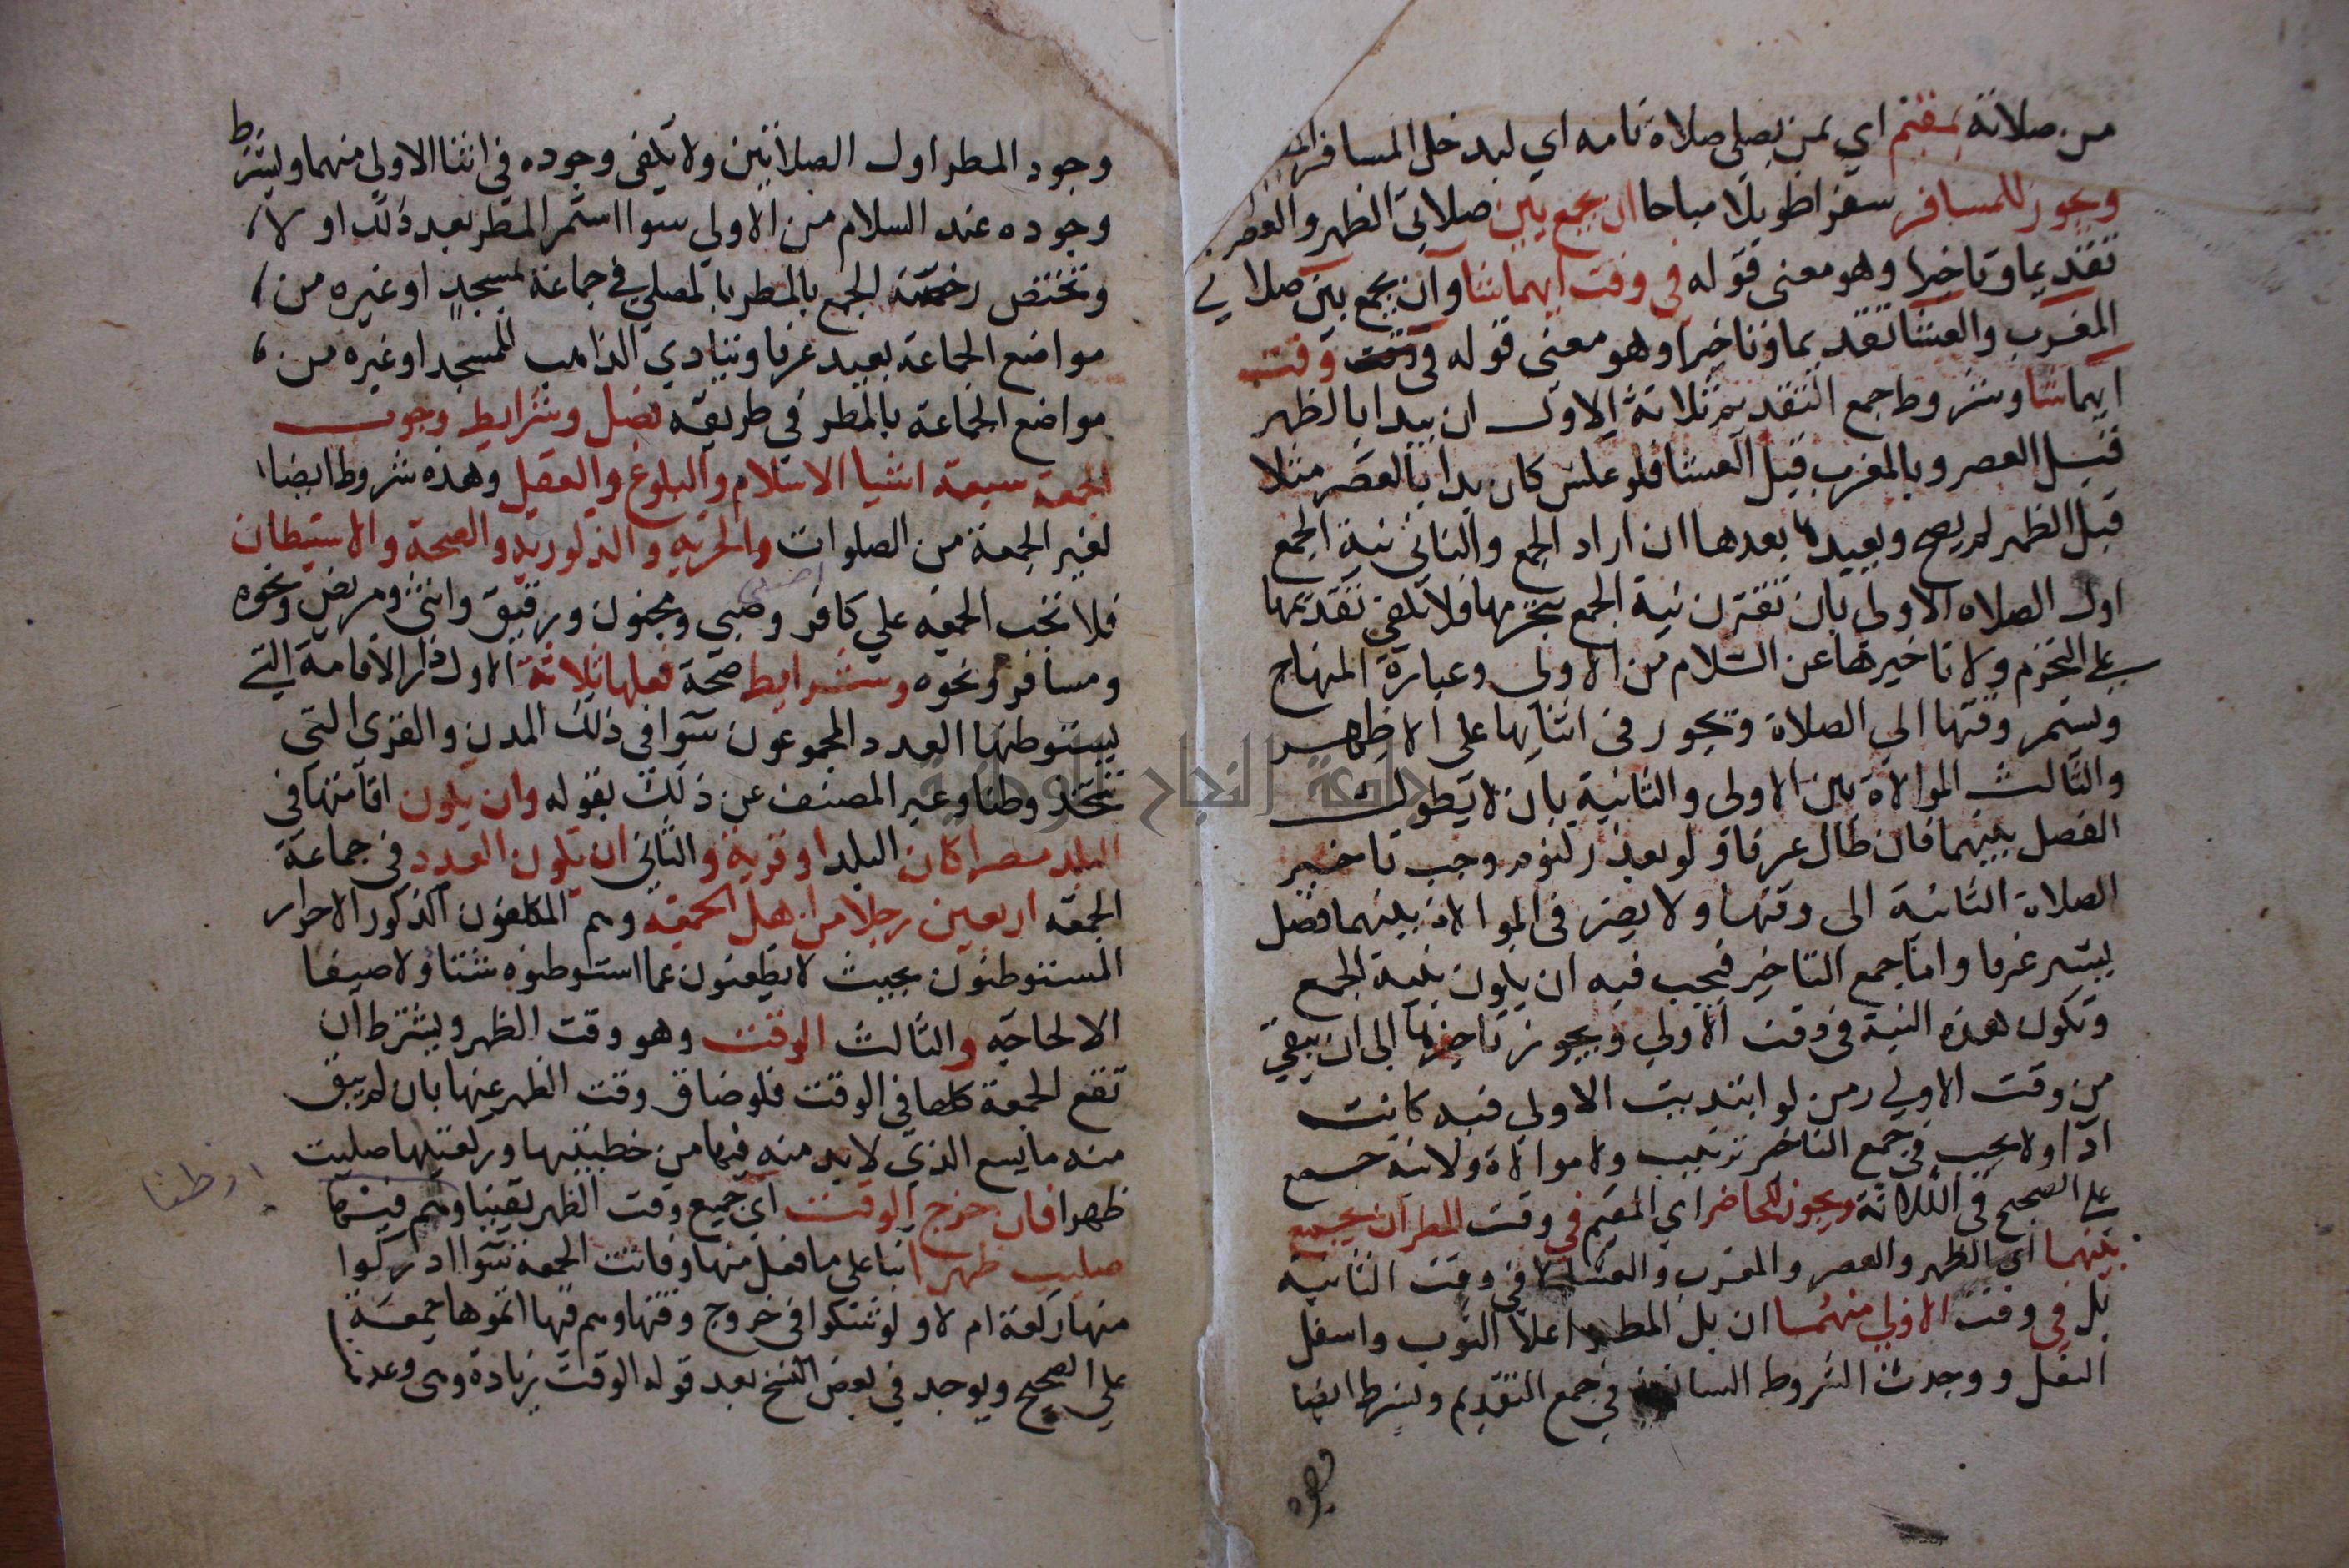 من صلاته بمقيم اي بمن يصلي صلاة تامه اي ليدخل المسافر
ويجوز للمسافر سفرا طويلا مباحا ان يجمع بين صلاتي الظهر والعصر
تقديما وتاخيرا وهو معنى قوله في وقت ايهما شا وان يجمع بين صلاتي
المغرب والعشا تقديما وتاخيرا وهو معنى قوله في وقت
ايهما شا وشروط جمع التقديم ثلاثة الاول ان يبدا بالظهر
قبل العصر وبالمغرب قبل العشا فلو عكس كان بدا بالعصر مثلا
قبل الظهر لم يصح ويعيدها بعدها ان اراد الجمع والثاني نية الجمع
اول الصلاه الاولي بان تقترن نية الجمع بتحرمها فلا يكفي تقديمها
على التحرم ولا تاخيرها عن السلام من الاولى وعبارة المنهاج
ويستمر وقتها الي الصلاة وتجوز في اثنايها على الاظهر
والثالث الموالاة بين الاولى والثانية بان لا يطول
الفصل بينهما فان طال عرفا ولو بعذر لنوم وجب تاخير
الصلاة الثانية الى وقتها ولا يضر في الموالاة بينهما فصل
يسير عرفا واما جمع التاخير فيجب فيه ان يكون بنية الجمع
وتكون هذه النية في وقت الاولي ويجوز تاخيرها الى ان يبقي
من وقت الاولي زمن لو ابتديت الاولى فيه كانت
ادا ولا يجب في جمع التاخر ترتيب ولا موالاة ولا نية جمع
على الصحيح في الثلاثة ويجوز للحاضر اي المقيم في وقت المطر ان يجمع
بينهما اي الظهر والعصر والمغرب والعشا لا في وقت الثانية
بل في وقت الاولي منهما ان بل المطر اعلا الثوب واسفل
النعل ووجدت الشروط السابقة في جمع التقديم ويشترط ايضا
وجود
وجود المطر اول الصلاتين ولا يكفي وجوده في اثنا الاولى منهما ويشترط
وجوده عند السلام من الاولي سوا استمر المطر بعد ذلك او لا
وتختص رخصة الجمع بالمطر بالمصلي في جماعة بمسجد او غيره من
مواضع الجماعة بعيد عرفا ويتاذي الذاهب للمسجد او غيره من
مواضع الجماعة بالمطر في طريقه فصل وشرايط وجوب
الجمعة سبعة اشيا الاسلام والبلوغ والعقل وهذه شروط ايضا
لغير الجمعة من الصلوات والحريه والذكوريه والصحة والاستيطان
فلا تجب الجمعه علي كافر وصبي ومجنون ورقيق وانثى ومريض ونحوه
ومسافر ونحوه وشرايط صحة فعلها ثلاثة الاول دار الاقامة التي
يستوطنها العدد المجموعون سوا في ذلك المدن والقرى التي
تتخذ وطنا وعبر المصنف عن ذلك بقوله وان يكون اقامتها في
البلد مصرا كان البلد او قرية والثاني ان يكون العدد في جماعة
الجمعه اربعين رجلا من اهل الجمعه وهم المكلفون الذكور الاحرار
المستوطنون بحيث لا يظعنون عما استوطنوه شتا ولا صيفا
الا لحاجه والثالث الوقت وهو وقت الظهر ويشترط ان
تقع الجمعة كلها في الوقت فلو ضاق وقت الظهر عنها بان لم يبق
منه ما يسع الذي لا بد منه فيها من خطبتيها وركعتيها صليت
ظهرا فان خرج الوقت اي جميع وقت الظهر يقينا وهم فيها
صليت ظهرا بنا على ما فعل منها وفاتت الجمعة سوا ادركوا
منها ركعة ام لا ولو شكوا في خروج وقتها وهم فيها اتموها جمعة
علي الصحيح ويوجد في بعض النسخ بعد قوله الوقت زيادة وهي وعدم
جامعة النجاح الوطنية